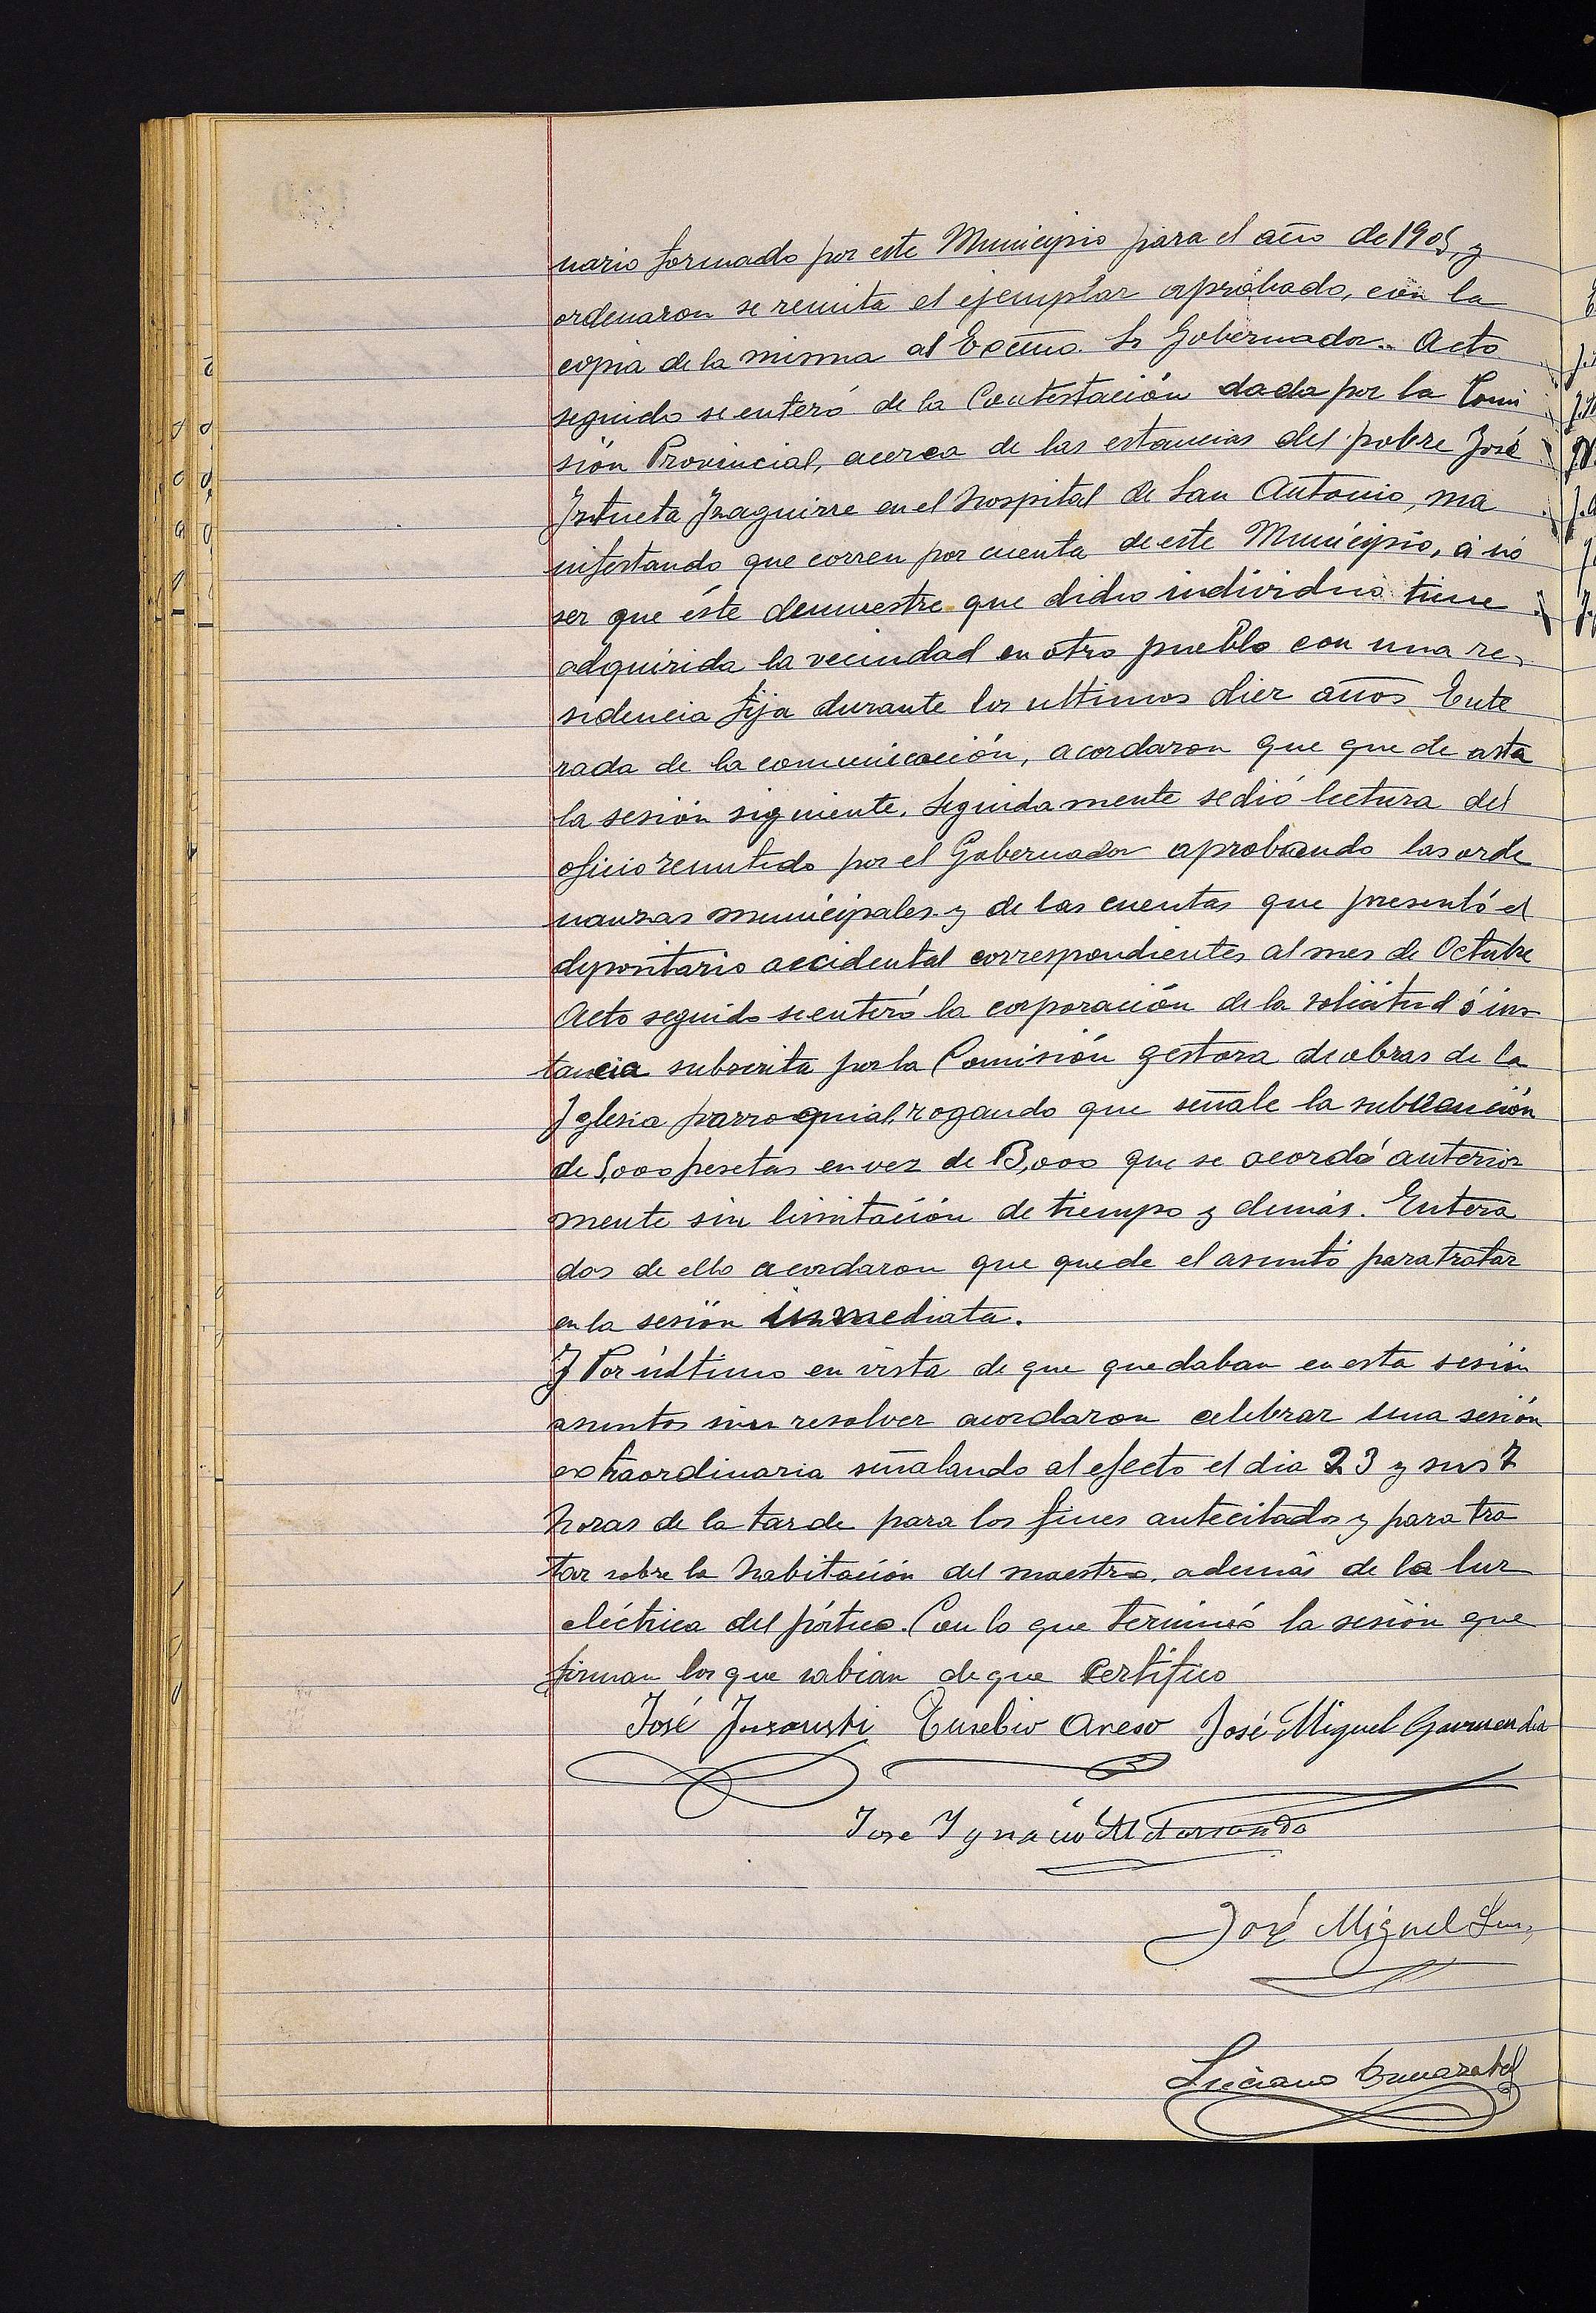 nario formado por este Municipio para el año de 1905, y
ordenaron se remita el ejemplar aprobado, con la
copia de la misma al Excmo. Sr Gobernador. Acto
seguido se enteró de la Contestación dada por la Comi
sión Provincial, acerca de las estancias del pobre José
Iztueta Izaguirre en el hospital de San Antonio, ma
nifestando que corren por cuenta de este Municipio, á no
ser que éste demuestre que dicho individuo tiene
adquirida la vecindad en otro pueblo con una re-
sidencia fija durante los ultimos diez años Ente
rada de la comunicación, acordaron que quede asta
la sesión siguiente. Seguidamente se dió lectura del
oficio remitido por el Gobernador aprobando las orde
nanzas municipales y de las cuentas que presentó el
depositario accidental correspondientes al mes de Octubre
Acto seguido se enteró la corporación de la solicitud ó ins
tancia subscrita por la Comisión gestora de obras de la
Iglesia parroquial, rogando que señale la subvención
de 5,000 pesetas en vez de 13,000 que se acordó anterior
mente sin limitación de tiempo y demás. Entera
dos de ello acordaron que quede el asunto para tratar
en la sesión inmediata.
Y Por último en vista de que quedaban en esta sesión
asuntos sin resolver acordaron celebrar una sesión
extraordinaria señalando al efecto el dia 23 y sus 7
horas de la tarde para los fines antecitados y para tra
tar sobre la habitación del maestro, además de la luz
eléctrica del pórtico. Con lo que terminó la sesión que
firman los que sabian de que certifico
José Inzausti Eusebio Aneso José Miguel Garmendia
Jose Ygnacio Aldasoro
José Miguel
Luciano